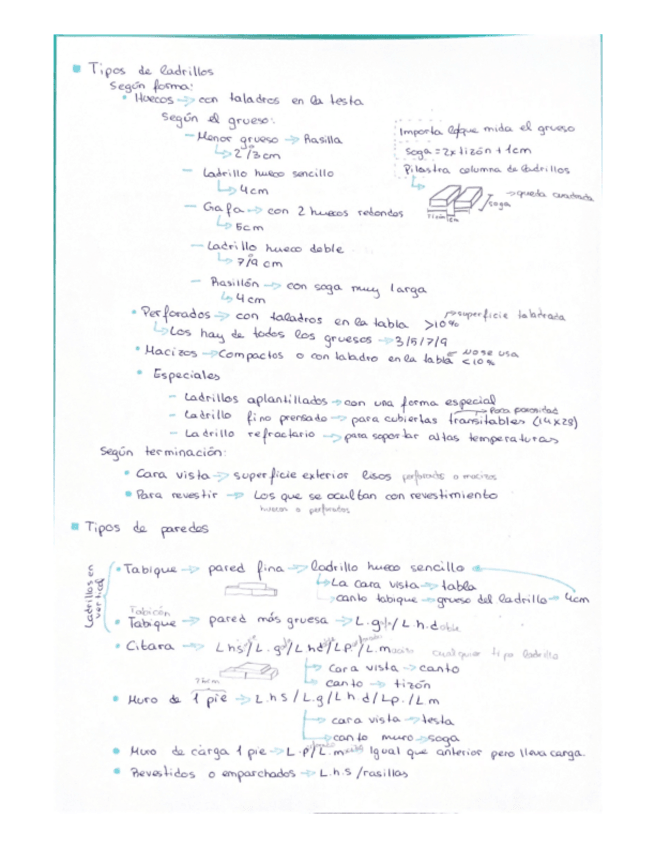 Tipos de ladrillos
Según forma:
Huecos → con taladros en la testa
Según el grueso:
— Menor grueso → Rasilla
↳ 2º/3 cm
— Ladrillo hueco sencillo
↳ 4cm
— Gafa → con 2 huecos redondos
↳ 5cm
— Ladrillo hueco doble
↳ 7/9 cm
— Rasillón → con soga muy larga
↳ 4 cm
Importa lo que mida el grueso
Soga = 2x tizón + 1cm
Pilastra columna de ladrillos
→ queda cuadrada
soga
tizón
1cm
• Perforados → con taladros en la tabla >10% → superficie taladrada
↳ Los hay de todos los gruesos → 3/5/7/9
• Macizos → Compactos o con taladro en la tabla <10% NO SE USA
• Especiales
— Ladrillos aplantillados → con una forma especial
— Ladrillo fino prensado → para cubiertas transitables (14x28) → Poca porosidad
— Ladrillo refractario → para soportar altas temperaturas
Según terminación:
• Cara vista → superficie exterior lisos perforado o macizos
• Para revestir → Los que se ocultan con revestimiento
huecos o perforados
Tipos de paredes
Ladrillos en vertical
• Tabique → pared fina → ladrillo hueco sencillo
↳ La cara vista → tabla
↳ canto tabique → grueso del ladrillo → 4cm
Tabicón
• Tabique → pared más gruesa → L.gafa/L.h.doble
• Citara → L h s/L.g/L h d/L p./L.macizo cualquier tipo ladrillo
→ cara vista → canto
→ canto → tizón
• Muro de 1 pie → L.h S/L.g/L h d/L p./L m
→ cara vista → testa
→ canto muro → soga
• Muro de carga 1 pie → L.p/L.m Igual que anterior pero lleva carga.
• Revestidos o emparchados → L.h.s /rasillas